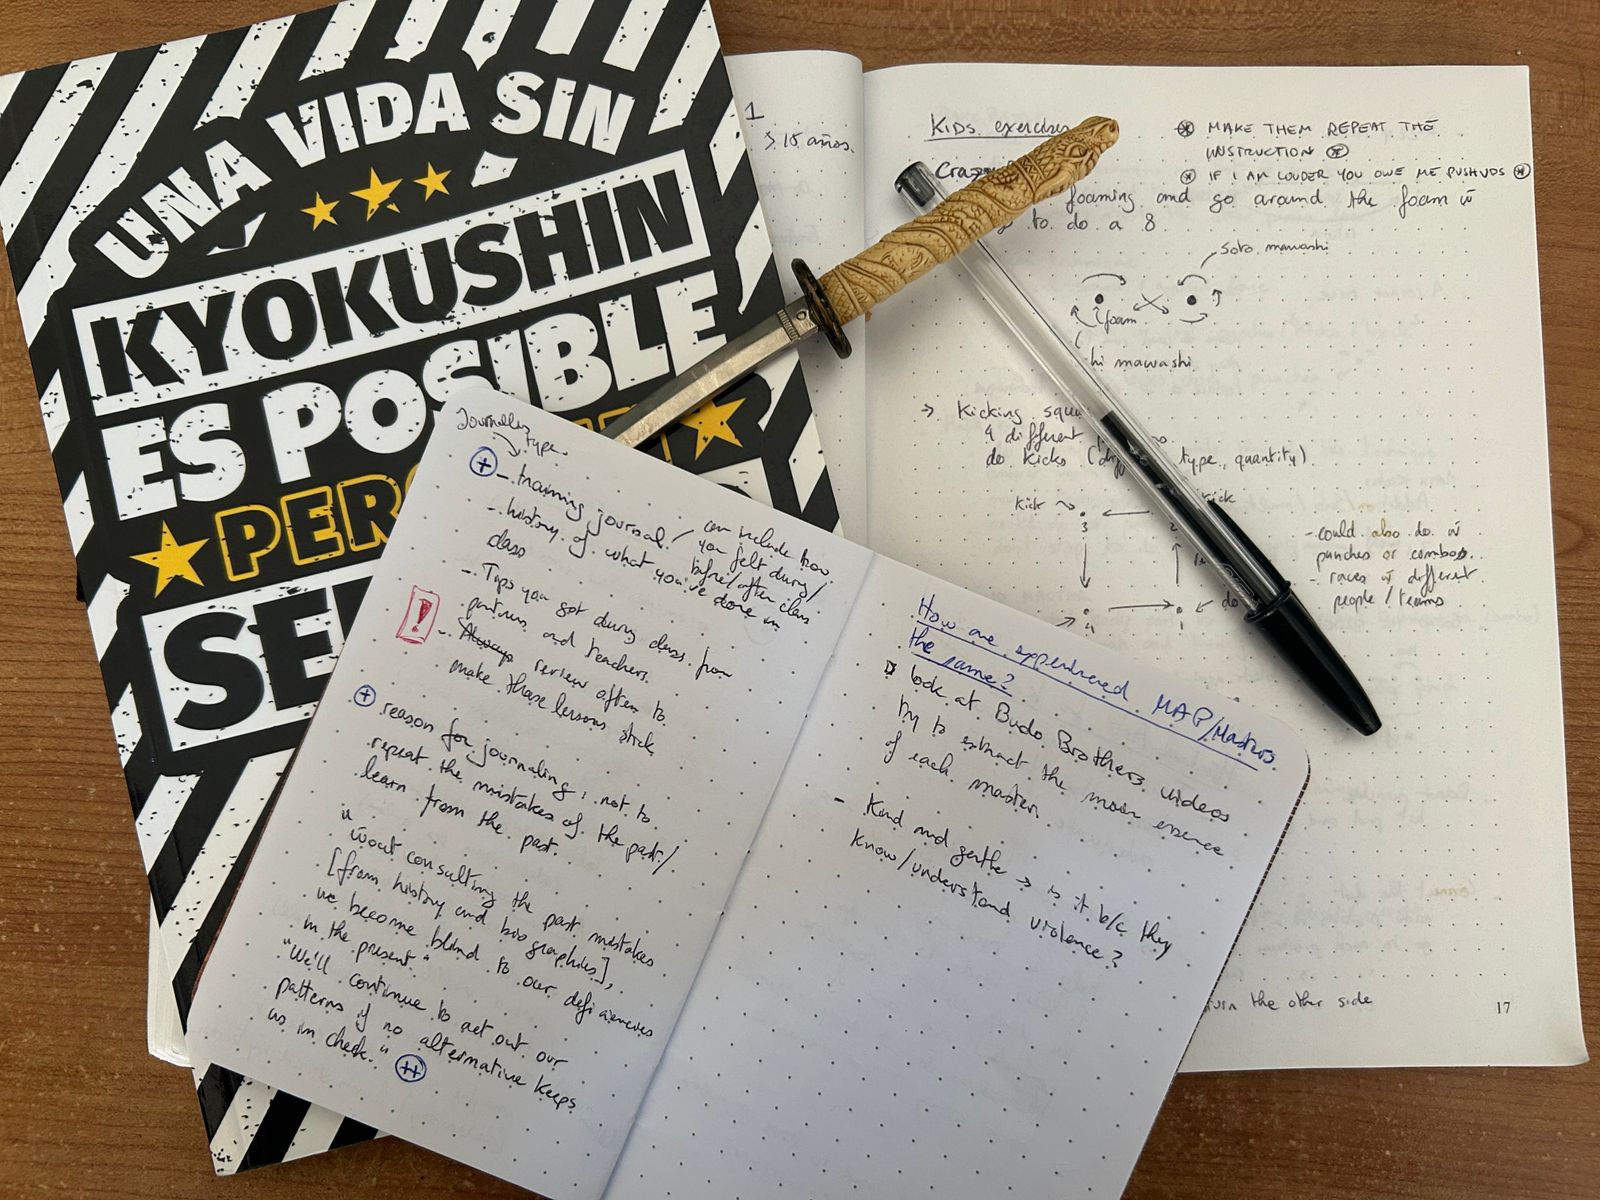 UNA VIDA SIN
KYOKUSHIN
ES POSIBLE
PERO
SE
1
> 15 años.
KIDS exercises
⊛ MAKE THEM REPEAT THE
INSTRUCTION ⊛
⊛ IF I AM LOUDER YOU OWE ME PUSHUPS ⊛
Crazy
foaming and go around the foam w̄
to do a 8
soto mawashi
foam
hi mawashi
→ Kicking squ
4 different
do kicks (          type, quantity)
kick
3
2
kick
4
1
do
- could also do w̄
punches or combos.
- races w̄ different
people / teams
turn the other side
17
Journaling
types
⊕ - training journal / can include how
you felt during/
before/after class
- history of what you've done in
class
- Tips you got during class from
partners and teachers.
! - Always review often to
make those lessons stick
⊕ reason for journaling: not to
repeat the mistakes of the past/
learn from the past.
"w̄out consulting the past mistakes
[from history and biographies],
we become blind to our deficiencies
in the present."
"We'll continue to act out our
patterns if no alternative keeps
us in check." ++
How are experienced MAP/Masters
the same?
look at Budo Brothers videos
try to extract the main essence
of each master
- Kind and gentle → is it b/c they
know/understand violence?